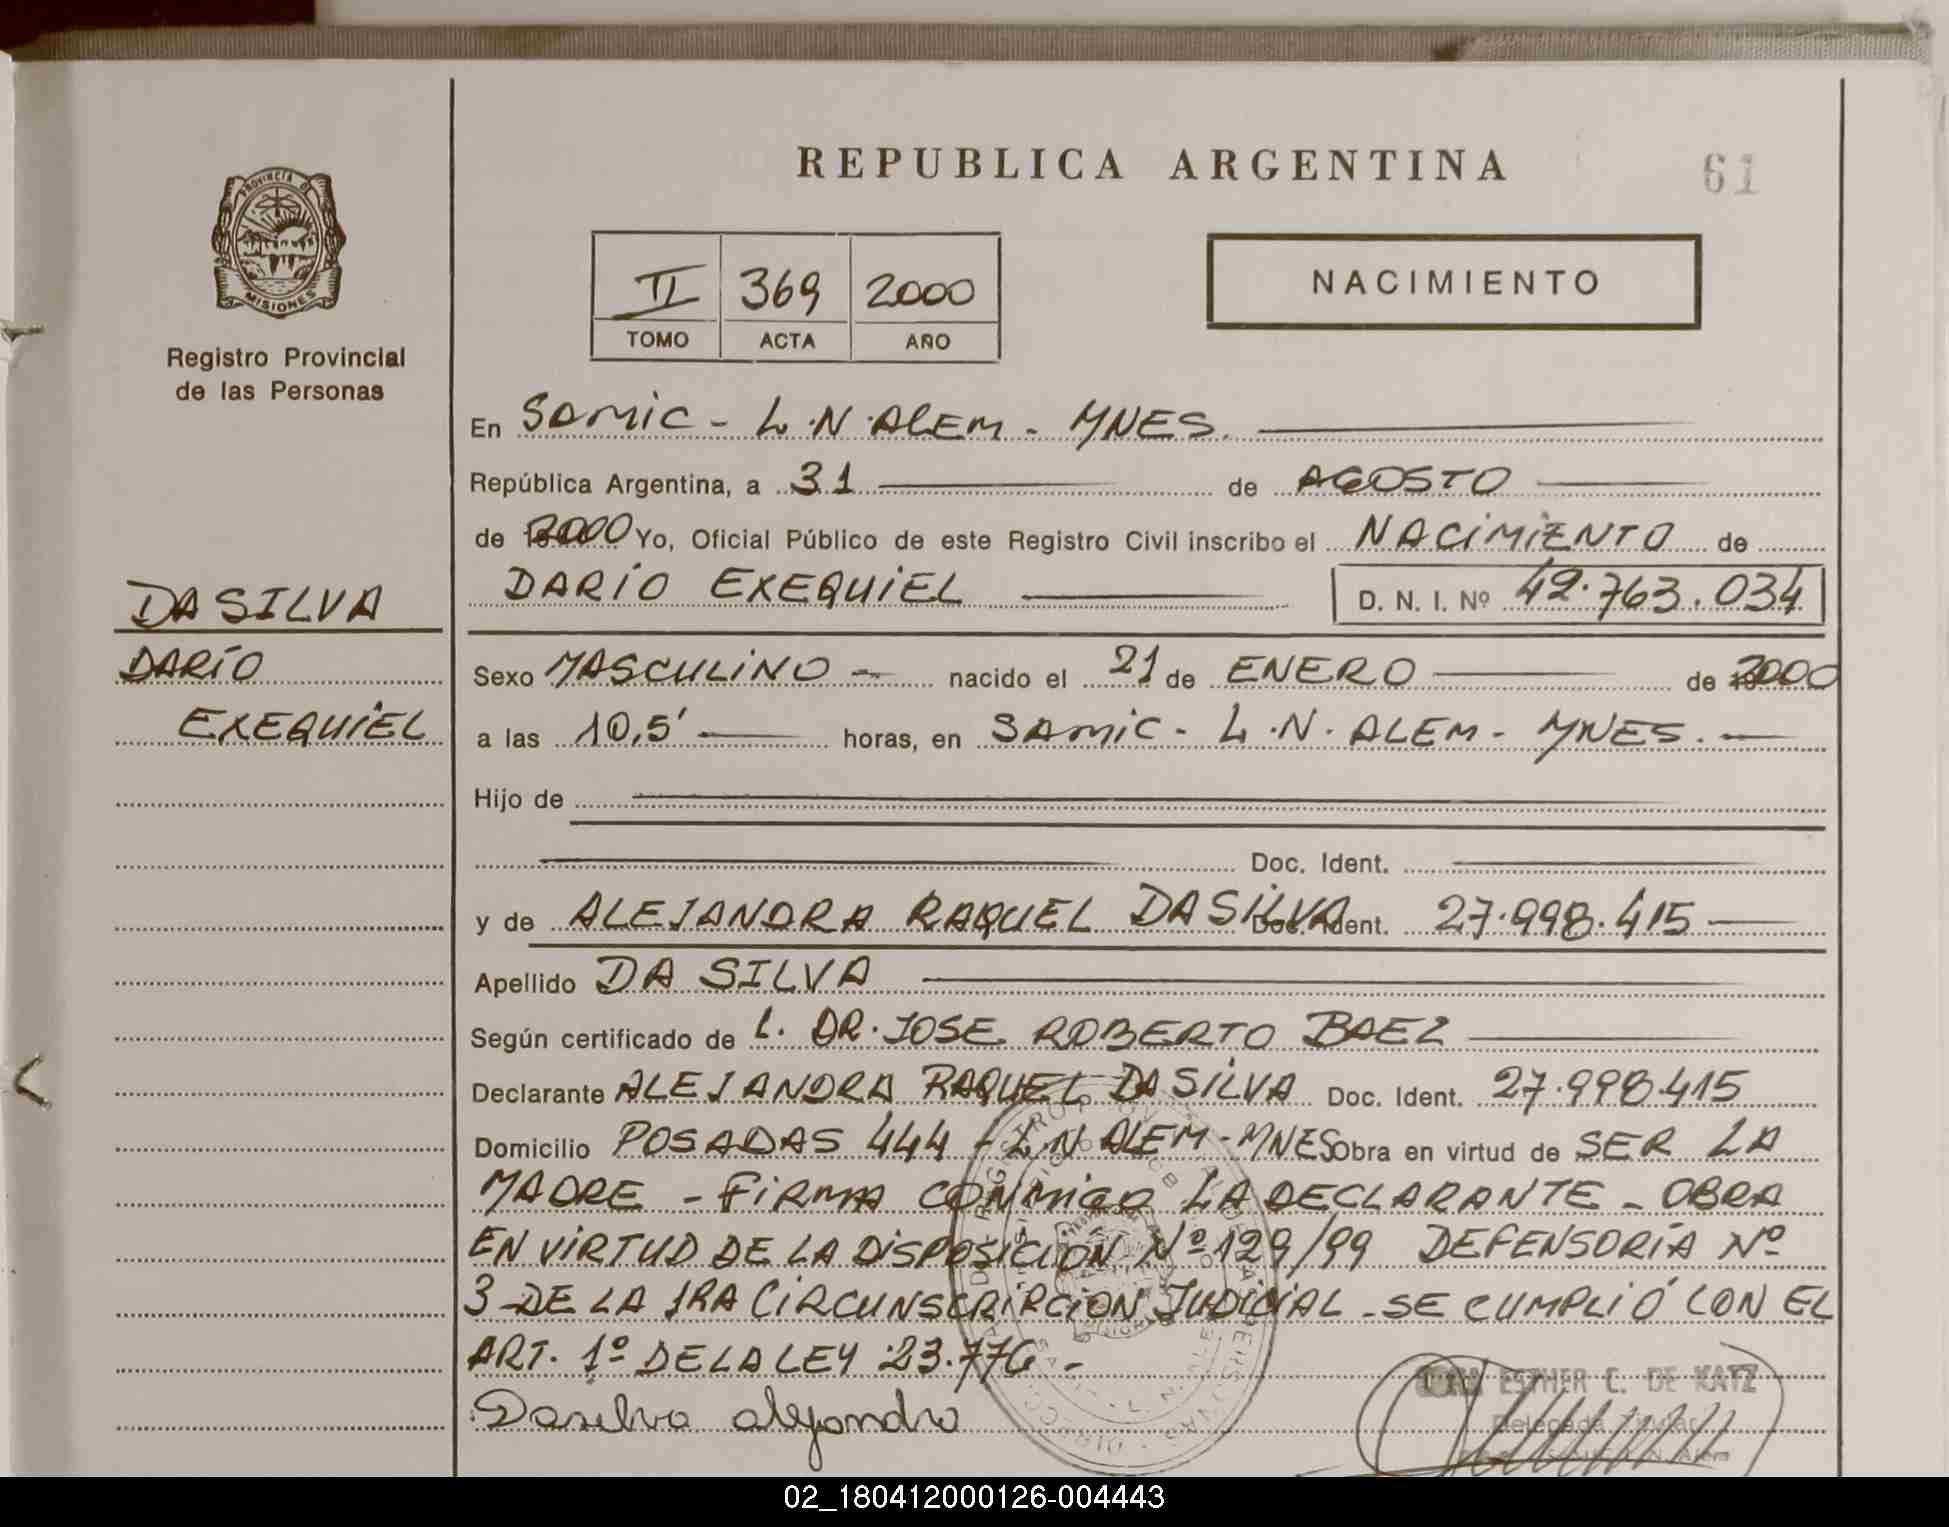 REPUBLICA ARGENTINA
61
PROVINCIA D
MISIONES
Registro Provincial
de las Personas
II 369 2000
TOMO ACTA AÑO
NACIMIENTO
En SAMIC - L.N.ALEM - MNES.
República Argentina, a 31 de AGOSTO
de 2000 Yo, Oficial Público de este Registro Civil inscribo el NACIMIENTO de
DARÍO EXEQUIEL D. N. I. Nº 42.763.034
DA SILVA
DARÍO
EXEQUIEL
Sexo MASCULINO nacido el 21 de ENERO de 2000
a las 10,5' horas, en SAMIC - L.N. ALEM - MNES.
Hijo de
Doc. Ident.
y de ALEJANDRA RAQUEL DA SILVA Doc. Ident. 27.998.415
Apellido DA SILVA
Según certificado de L. DR. JOSE ROBERTO BAEZ
Declarante ALEJANDRA RAQUEL DA SILVA Doc. Ident. 27.998.415
Domicilio POSADAS 444 - L.N ALEM - MNES Obra en virtud de SER LA
MADRE - FIRMA CONMIGO LA DECLARANTE - OBRA
EN VIRTUD DE LA DISPOSICIÓN Nº 129/99 DEFENSORÍA Nº
3 DE LA 1RA CIRCUNSCRIPCIÓN JUDICIAL - SE CUMPLIÓ CON EL
ART. 1º DE LA LEY 23.776 -
Dasilva alejandra
ESTHER C. DE KATZ
Delegada Titular
02_180412000126-004443